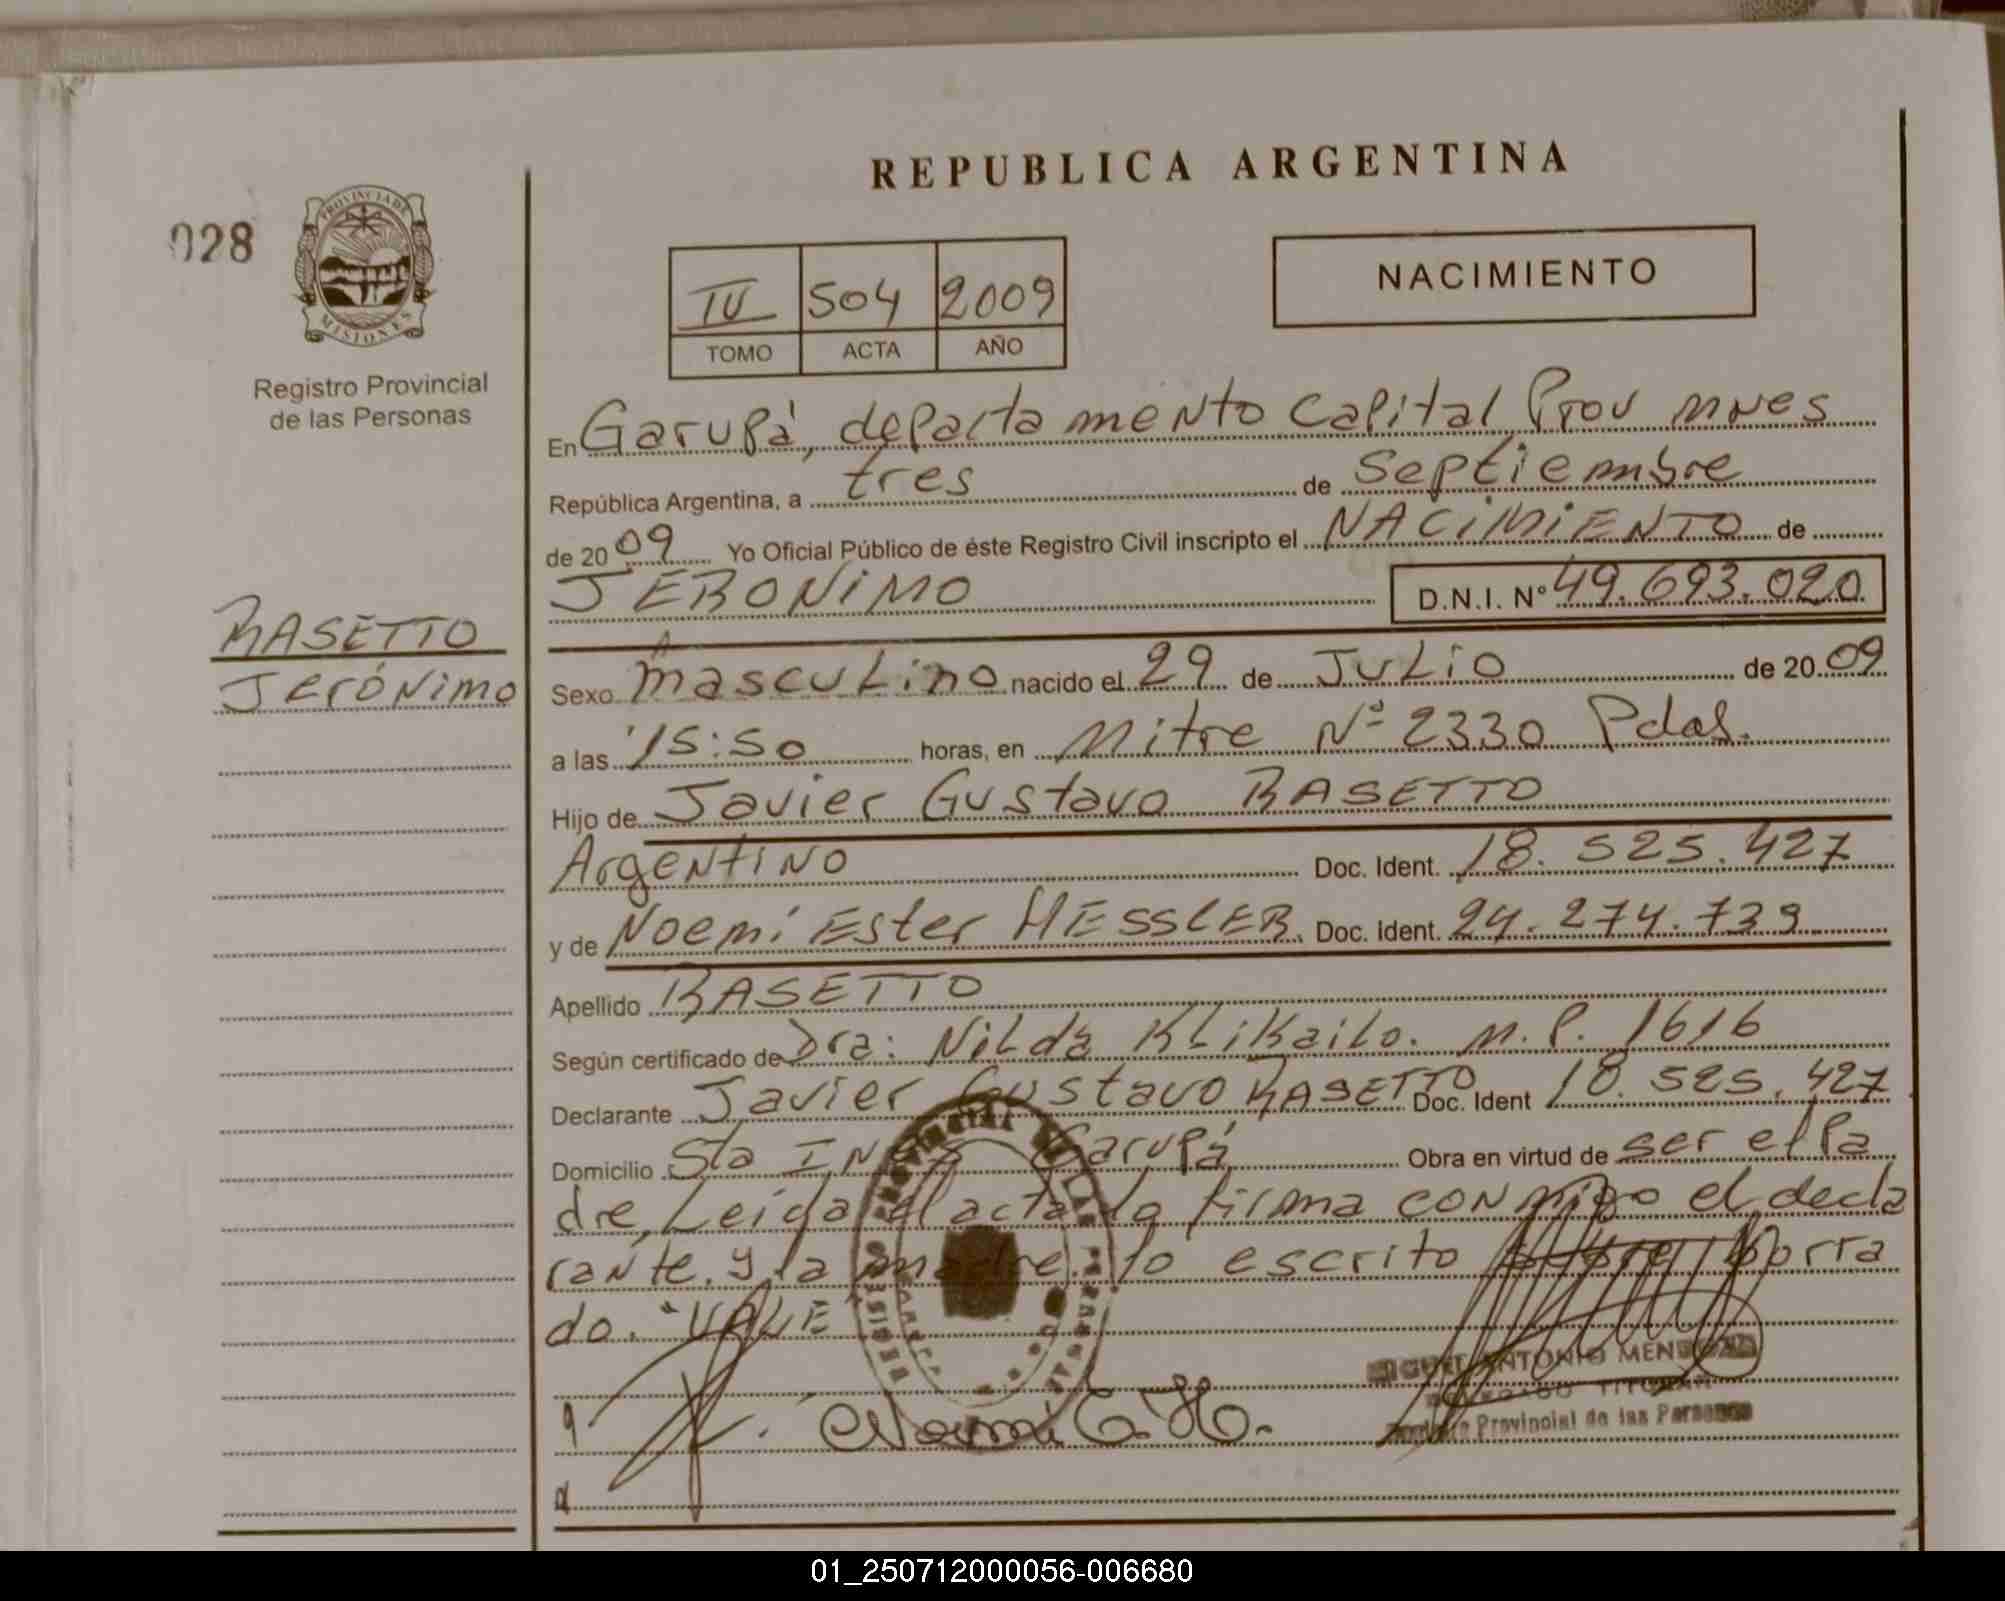 REPUBLICA ARGENTINA
028
PROVINCIA DE
MISIONES
Registro Provincial
de las Personas
IV 504 2009
TOMO ACTA AÑO
NACIMIENTO
En Garupá, departamento Capital Prov mnes
República Argentina, a tres de septiembre
de 20 09 Yo Oficial Público de éste Registro Civil inscripto el NACIMIENTO de
JERONIMO D.N.I. Nº 49.693.020
RASETTO
Jerónimo
Sexo masculino nacido el 29 de JULIO de 20 09
a las 15:50 horas, en Mitre Nº 2330 Pdas.
Hijo de Javier Gustavo RASETTO
Argentino Doc. Ident. 18.525.427
y de Noemí Ester HESSLER. Doc. Ident. 24.274.739
Apellido RASETTO
Según certificado de Dra: Nilda Klikailo. M.P. 1616
Declarante Javier Gustavo RASETTO Doc. Ident 18.525.427
Domicilio Sta INés Garupá Obra en virtud de ser el Pa
dre, Leída el acta la firma conmigo el decla
rante. y la madre. lo escrito sobre borra
do. "VALE
Noemi E. H.
ANTONIO MENDOZA
TITULAR
Provincial de las Personas
01_250712000056-006680